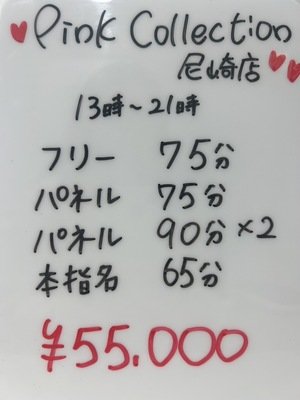 Pink Collection
尼崎店
13時～21時
フリー 75分
パネル 75分
パネル 90分×2
本指名 65分
¥55.000